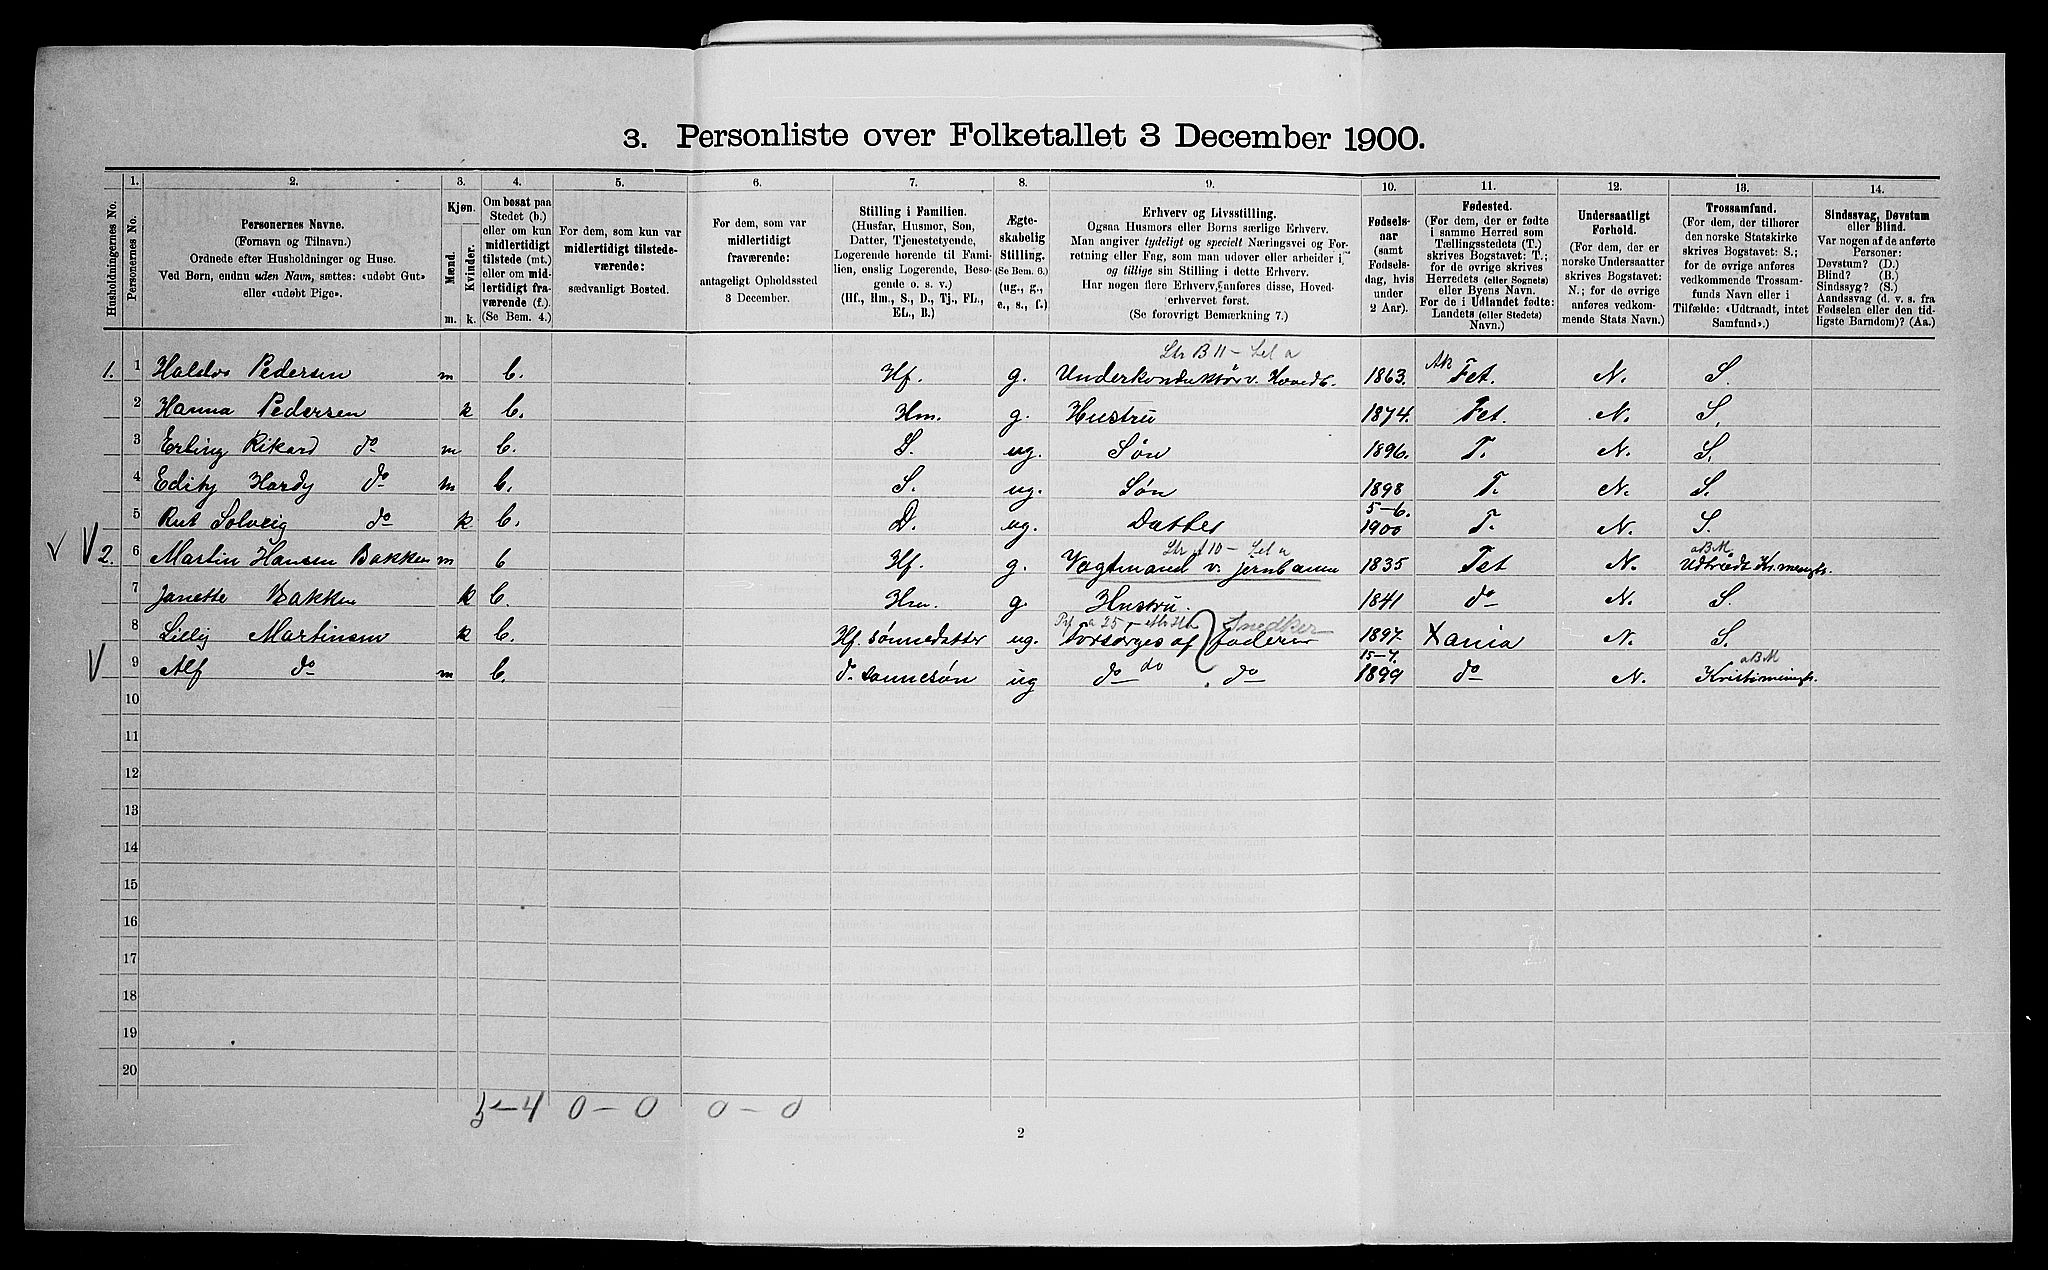 3. Personliste over Folketallet 3 December 1900.
1. 2. 3. 4. 5. 6. 7. 8. 9. 10. 11. 12. 13. 14.
Husholdningernes No.
Personernes No.
Personernes Navne.
(Fornavn og Tilnavn.)
Ordnede efter Husholdninger og Huse.
Ved Børn, endnu uden Navn, sættes: «udøbt Gut»
eller «udøbt Pige».
Kjøn.
Mænd. Kvinder.
m. k.
Om bosat paa
Stedet (b.)
eller om kun
midlertidigt
tilstede (mt.)
eller om mid-
lertidigt fra-
værende (f.).
(Se Bem. 4.)
For dem, som kun var
midlertidigt tilstede-
værende:
sædvanligt Bosted.
For dem, som var
midlertidigt
fraværende:
antageligt Opholdssted
3 December.
Stilling i Familien.
(Husfar, Husmor, Søn,
Datter, Tjenestetyende,
Logerende hørende til Fami-
lien, enslig Logerende, Besø-
gende o. s. v.)
(Hf., Hm., S., D., Tj., FL.,
EL., B.)
Ægte-
skabelig
Stilling.
(Se Bem. 6.)
(ug., g.,
e., s., f.)
Erhverv og Livsstilling.
Ogsaa Husmors eller Børns særlige Erhverv.
Man angiver tydeligt og specielt Næringsvei og For-
retning eller Fag, som man udøver eller arbeider i,
og tillige sin Stilling i dette Erhverv.
Har nogen flere Erhverv, anføres disse, Hoved-
erhvervet først.
(Se forøvrigt Bemærkning 7.)
Fødsels-
aar
(samt
Fødsels-
dag, hvis
under
2 Aar).
Fødested.
(For dem, der er fødte
i samme Herred som
Tællingsstedets (T.)
skrives Bogstavet: T.;
for de øvrige skrives
Herredets (eller Sognets)
eller Byens Navn.
For de i Udlandet fødte:
Landets (eller Stedets)
Navn.)
Undersaatligt
Forhold.
(For dem, der er
norske Undersaatter
skrives Bogstavet:
N.; for de øvrige
anføres vedkom-
mende Stats Navn.)
Trossamfund.
(For dem, der tilhører
den norske Statskirke
skrives Bogstavet: S.;
for de øvrige anføres
vedkommende Trossam-
funds Navn eller i
Tilfælde: «Udtraadt, intet
Samfund».)
Sindssvag, Døvstum
eller Blind.
Var nogen af de anførte
Personer:
Døvstum? (D.)
Blind? (B.)
Sindssyg? (S.)
Aandssvag (d. v. s. fra
Fødselen eller den tid-
ligste Barndom)? (Aa.)
Str B 11 - Lel a
1. 1 Halvor Pedersen m b. Hf. g. Underkonduktør v. Hovedb. 1863. Ak Fet. N. S.
2 Hanna Pedersen k b. Hm. g. Hustru 1874. Fet. N. S.
3 Erling Rikard do m b. S. ug. Søn 1896. T. N. S.
4 Edity Hardy do m b. S. ug. Søn 1898 T. N. S.
5 Rut Solveig do k b. D. ug. Datter 5-6. 1900 T. N. S.
10 - Lel a aBM
2. 6 Martin Hansen Bakken m b Hf. g. Vagtmand v. jernbanen 1835 Fet N. Udtrådt Kr. menigh.
7 Janette Bakken k b. Hm. g. Hustru. 1841 do N. S.
Snedker
8 Lilly Martinsen k b. Hf. sønnedatter ug. Forsørges af faderen 1897. Xania N. S.
aBM
9 Alf do m b. do sønnesøn ug do do do 15-4. 1899 do N. Kristi menigh.
10
11
12
13
14
15
16
17
18
19
20
5-4 0-0 0-0
2